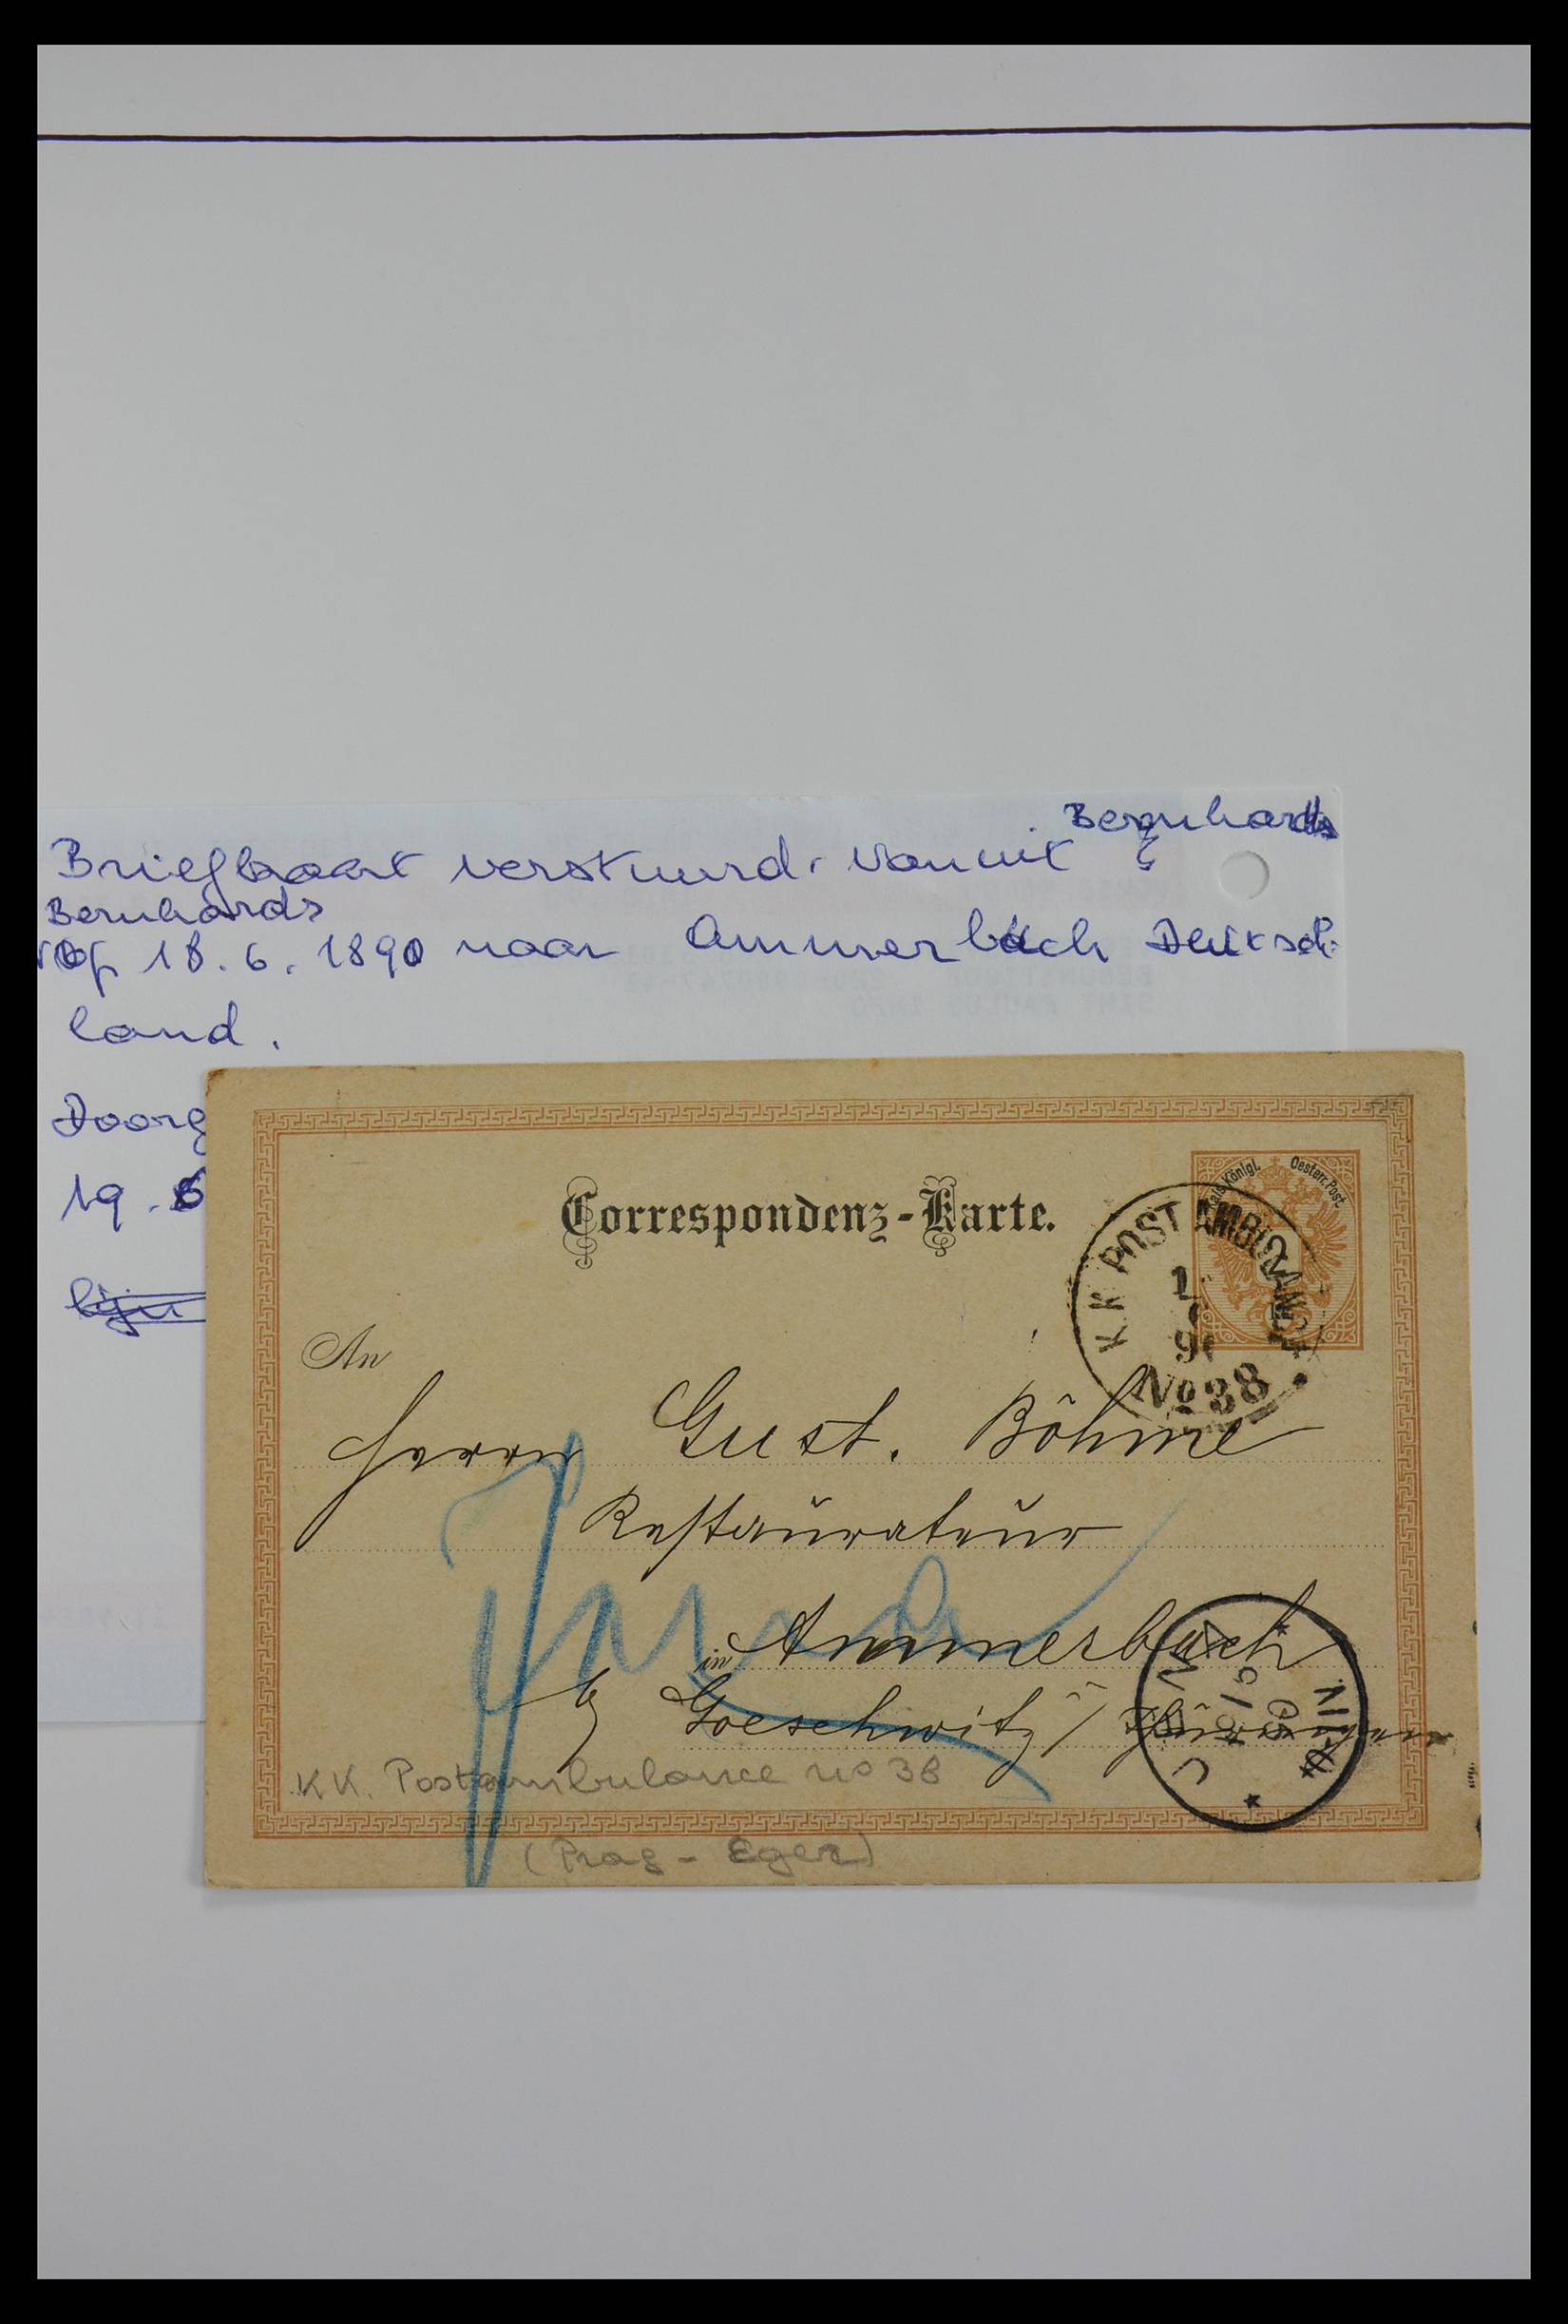 Bernhards
Briefkaart verstuurd vanuit
Bernhards
op 18.6.1890 naar Ammerbach Deutsch
land.
Doorg
19.6
lijn
Correspondenz-Karte.
Kais. Königl. Oesterr. Post.
K.K. POST AMBULANCE
No 38
An
Herrn Gust. Böhme
Restaurateur
in Ammerbach
b/ Goeschwitz / Thüringen
K.K. Postambulance no 38
(Prag - Eger)